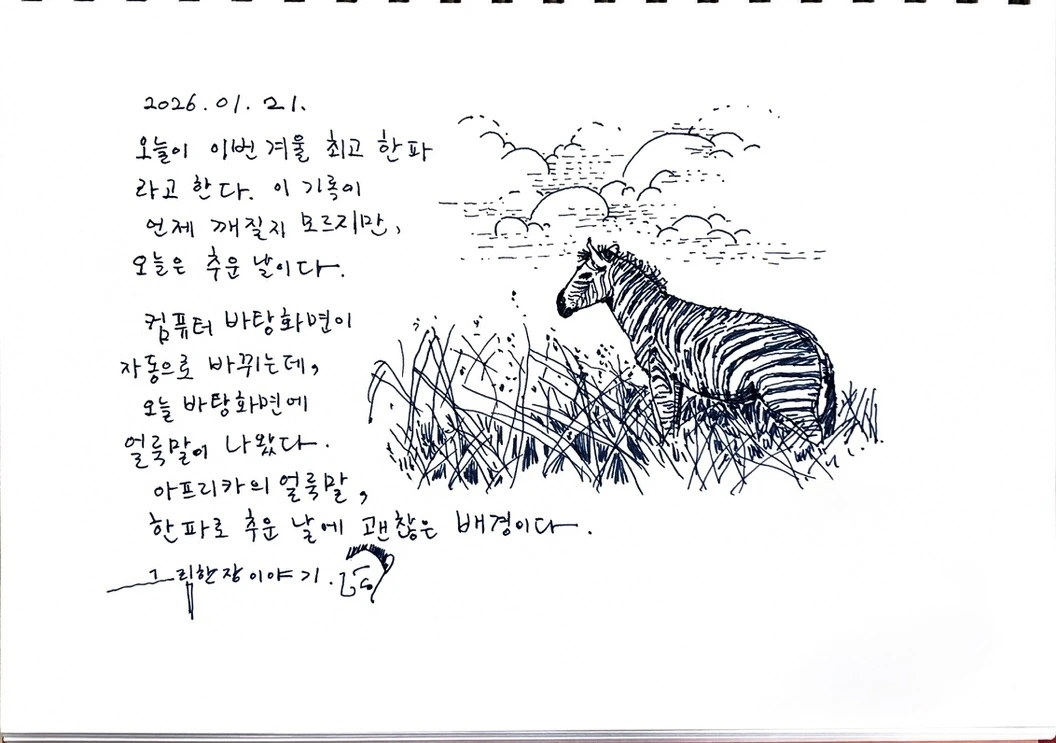 2026.01.21.
오늘이 이번 겨울 최고 한파
라고 한다. 이 기록이
언제 깨질지 모르지만,
오늘은 추운 날이다.
컴퓨터 바탕화면이
자동으로 바뀌는데,
오늘 바탕화면에
얼룩말이 나왔다.
아프리카의 얼룩말,
한파로 추운 날에 괜찮은 배경이다.
그림한장이야기.